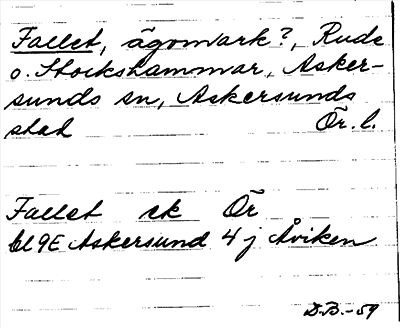 Fallet, ägomark?, Rude
o. Stockshammar, Asker-
sunds sn, Askersunds
stad Ör. l.
Fallet ek Ör
bl 9E Askersund 4 j Åviken
D.B.-59